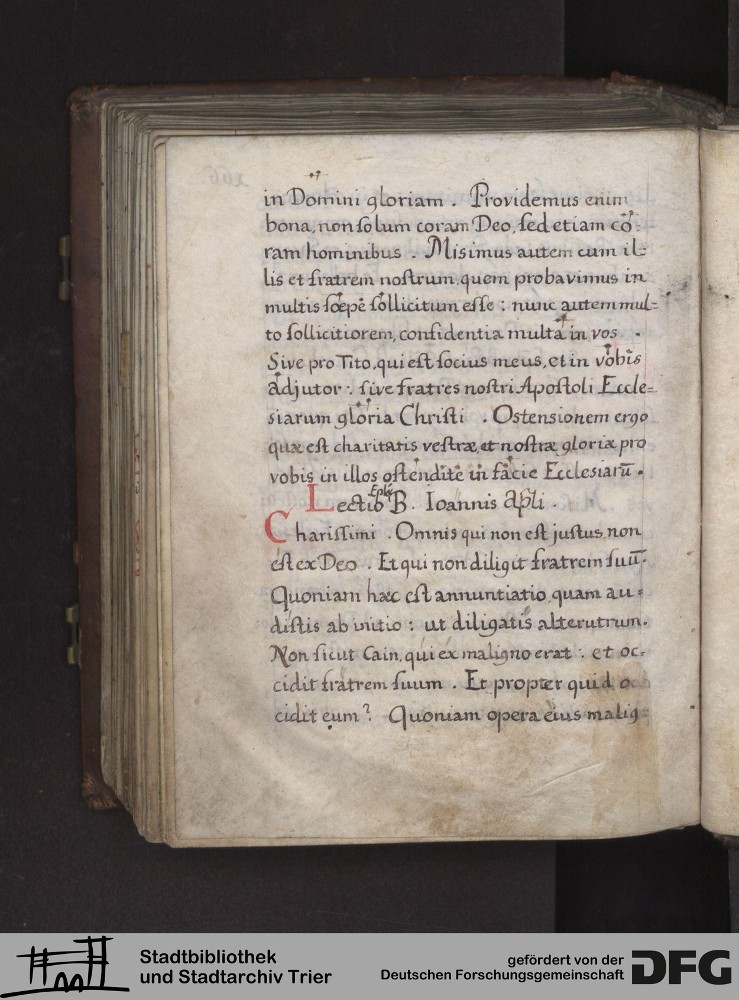 in Domini gloriam . Providemus enim
bona, non ſolum coram Deo, ſed etiam co-
ram hominibus . Misimus autem cum il-
lis et fratrem noſtrum, quem probavimus in
multis ſœpe ſollicitum eſſe : nunc autem mul-
to ſollicitiorem, confidentia multa in vos .
Sive pro Tito, qui eſt ſocius meus, et in vobis
adjutor : ſive fratres noſtri Apoſtoli Eccle-
siarum gloria Chriſti . Ostensionem ergo
quæ eſt charitatis veſtræ, et noſtræ gloriæ pro
vobis in illos oſtendite in facie Ecclesiarū .
Lectio Eplæ B. Ioannis Apli .
Chariſſimi . Omnis qui non eſt juſtus, non
eſt ex Deo . Et qui non diligit fratrem ſuū .
Quoniam hæc eſt annuntiatio, quam au-
diſtis ab initio : ut diligatis alterutrum.
Non ſicut Cain, qui ex maligno erat : et oc-
cidit fratrem ſuum . Et propter quid oc
cidit eum ? Quoniam opera eius malig-
Stadtbibliothek
und Stadtarchiv Trier
gefördert von der
Deutschen Forschungsgemeinschaft
DFG